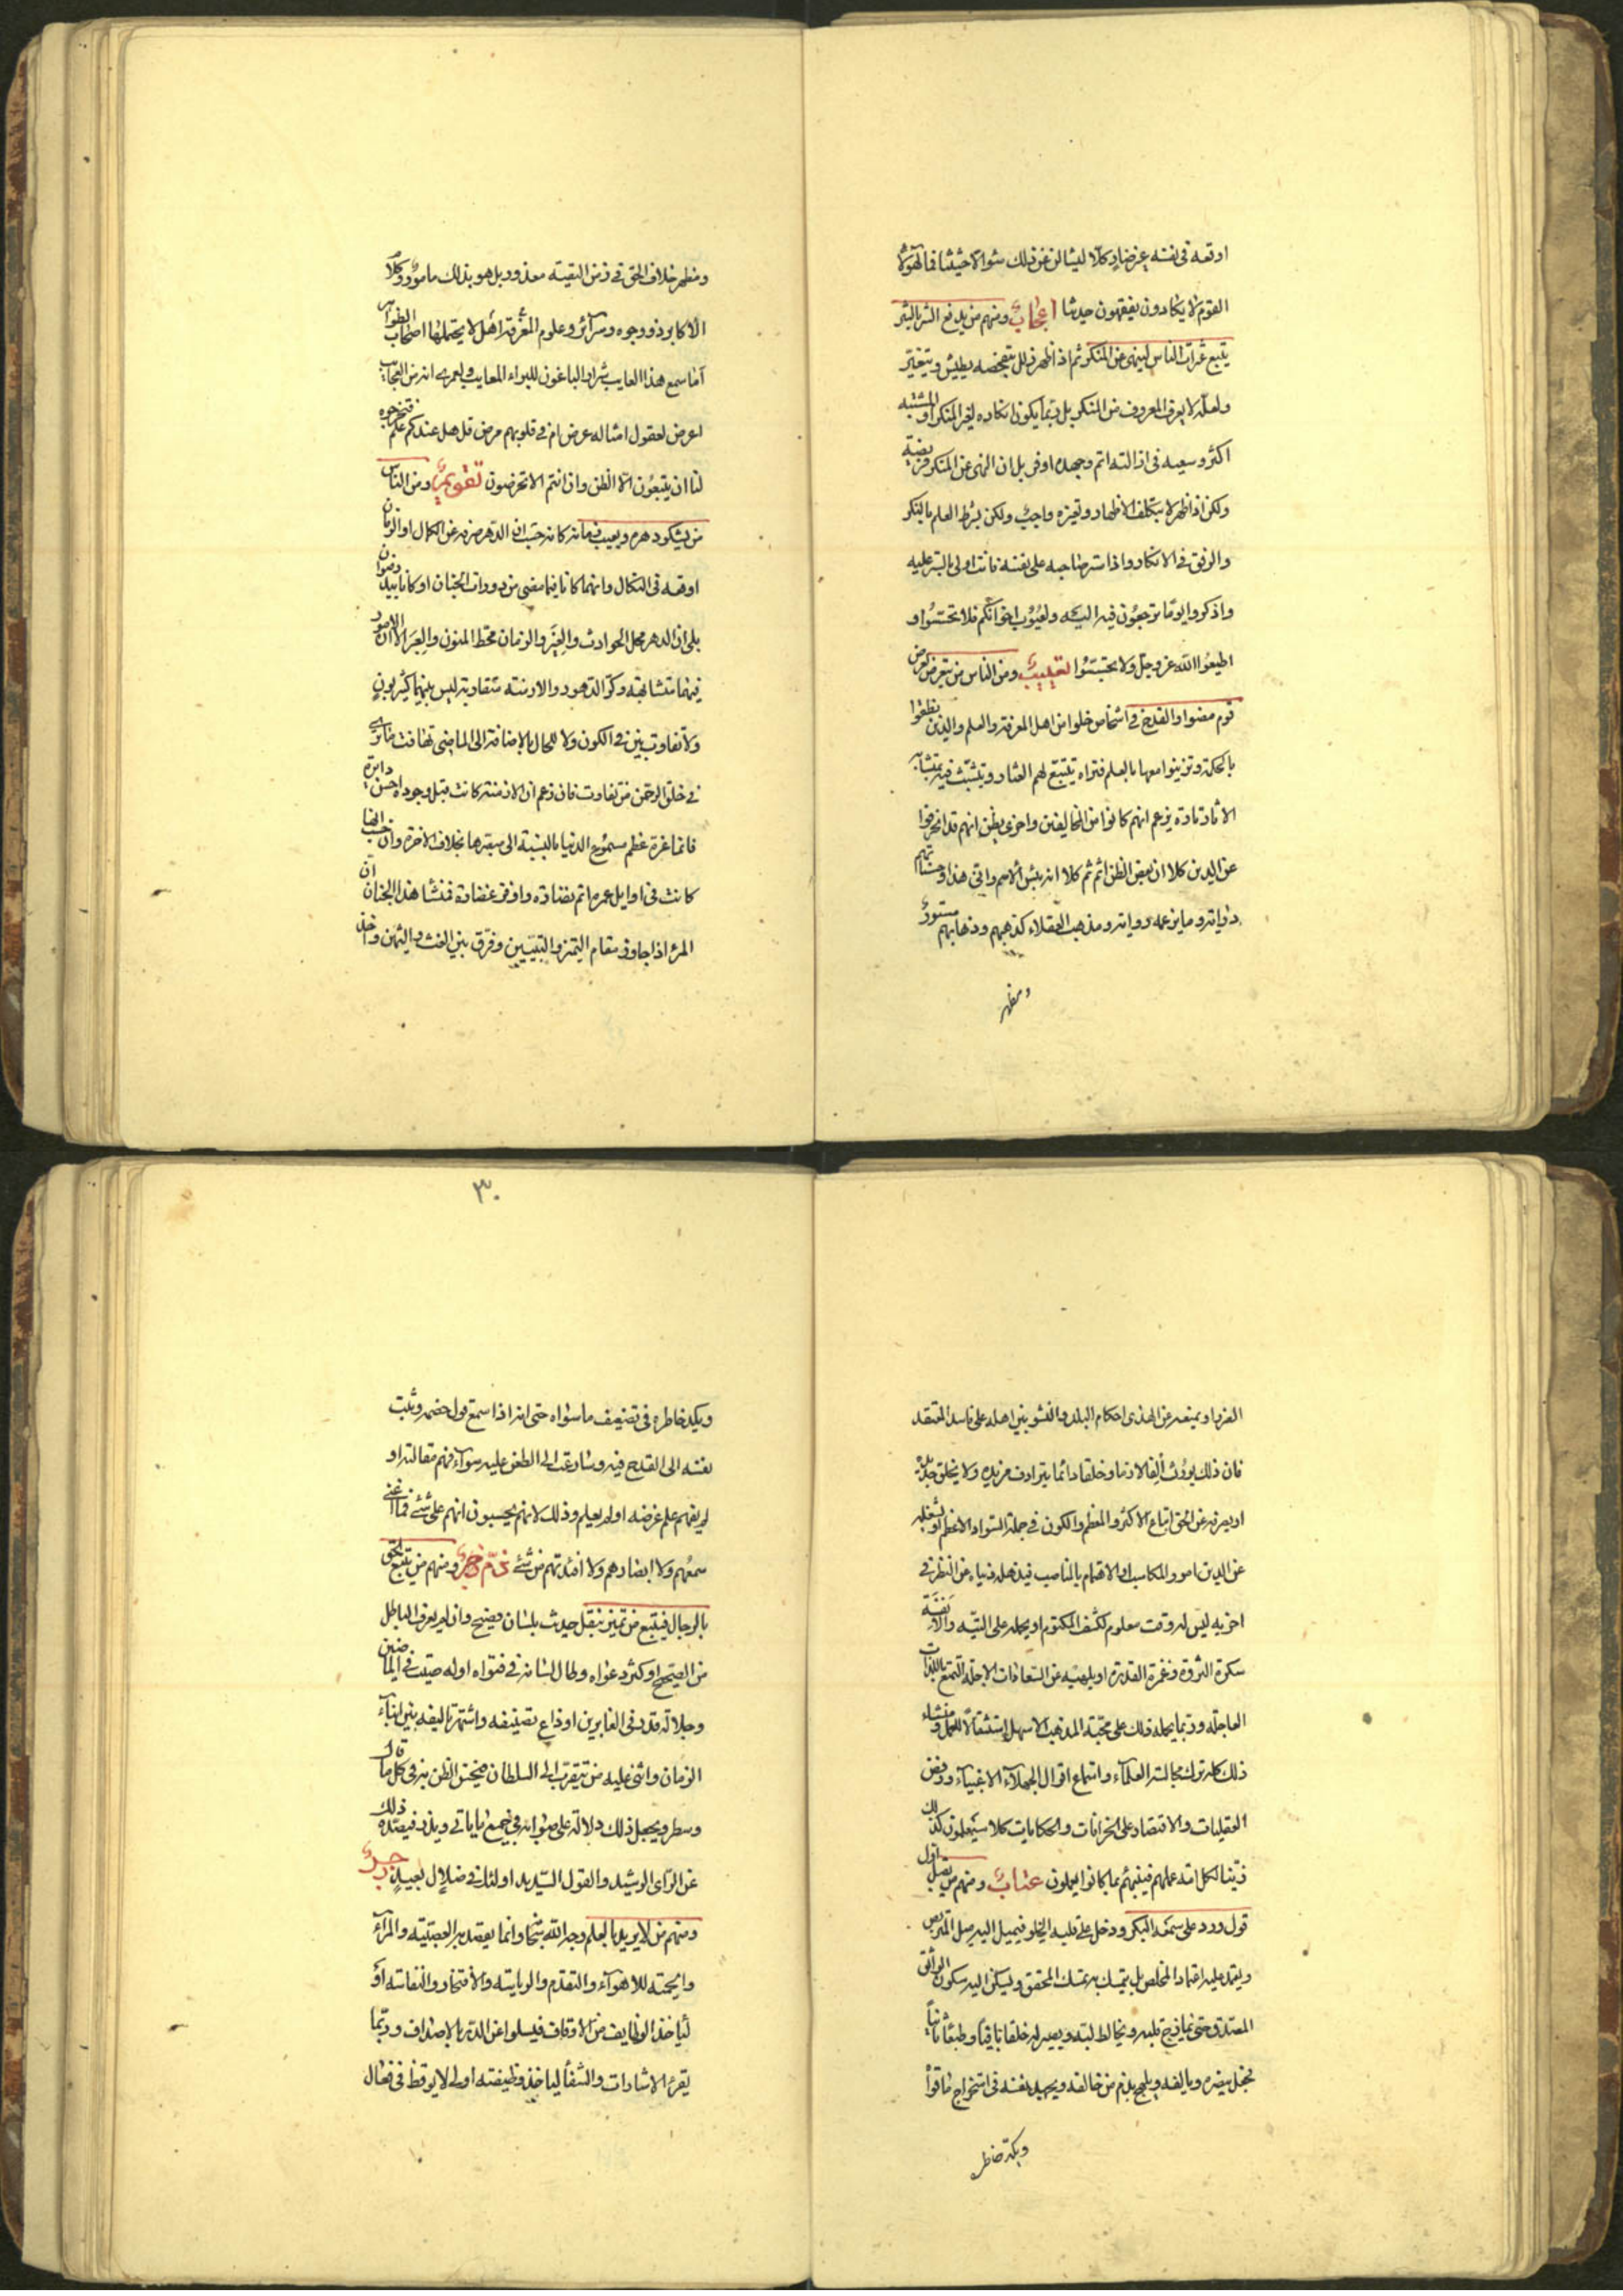 اوقعه فى نفسه عرضا وكلّا ليسالن عن ذلك سئوالا حثيثا فما لهؤلاء
القوم لا يكادون يفقهون حديثا اعجابٌ ومنهم من يدفع الشر بالشر
يتبع عثرات الناس لينهى عن المنكر ثم اذا ظهر ذلل بتفحّصه يطيش ويتغيّر
ولعلّه لا يعرف المعروف من المنكر بل ربّما يكون انكاره لغير المنكر او المشتبه
اكثر وسعيه فى ازالته اتم وجهده اوفر بل ان النهى عن المنكر فريضة
ولكن اذا ظهر لا بتكلف الاظهار وتعيزه واجبٌ ولكن بشرط العلم بالمنكر
والرفق فى الانكار واذا ستر صاحبه على نفسه فانت اولى بالستر عليه
واذكروا يومًا ترجعُون فيه اليه ولعيُوب اخوانكم فلا تحسّسُوا و
اطيعُوا الله عز وجل ولا تجسّسُوا تعييبٌ ومن الناس من يتعرض لعرض
قوم مضوا والقدح فى اشخاص خلوا من اهل المعرفة والعلم والذين نطقوا
بالحكمة وتزينوا معها بالعلم فتراه يتتبّع لهم العثار ويتشبّث فيه بمتشابه
الاثار تارة يزعم انهم كانوا من المخالفين واخرى يظن انهم قد انحرفوا
عن الدين كلا ان بعض الظن اثم ثم كلا انه بئس الاسم وانّى هذا وحسناتهم
درايته وما يزعمه روايته ومذهب العقلاء كذهبهم وذهابهم مستورٌ
ومظهر
ومظهر خلاف الحق فى زمن التقية معذور بل هو بذلك مامورٌ وكلام
الاكابر ذو وجوه وسرآئر وعلوم المعرفة اهل لا يحتملها اصحاب الظواهر
آما سمع هذا العايب شرار الباغون للبراء المعايب ولعمرى انه من العجايب
اعرض لعقول امثاله عرض ام فى قلوبهم مرض قل هل عندكم علم فتخرجوه
لنا ان يتبعُون الّا الظن وان انتم الا تخرصون تقويمٌ ومن الناس
من يشكو دهره ويعيب زمانه كانه حسب ان الدهر صرفه عن الكمال او الزمان
اوقعه فى النكال وانهما كانا فيما مضى من دورات الجنان او كانا بيد رضوان
بلى ان الدهر محل الحوادث والغِيَر والزمان محّط المنون والعِبَر الا ان الامور
فيهما متشابهة وكرّ الدهور والازمنه متقاربة ليس بينهما كثير بونٍ
ولا تفاوت بين فى الكون ولا للحال بالاضافة الى الماضى تهافت ما ترى
فى خلق الرحمن من تفاوت فان زعم ان الازمنة كانت قبل وجوده احسن دايرة
فانما غرة عظم مسموع الدنيا بالنسبة الى سيرها بخلاف الاخرة وان حسب انها
كانت فى اوايل عمره اتم نضارة واوفر غضارة فمنشأ هذا الحُسبان ان
المرء اذا جاوز مقام التميز والتبيين وفرّق بين الغث والثمن واخذ
الفرد او يمنعه عن الهذى احكام البلد والنشو بين اهله على فاسد المعتقد
فان ذلك يورث الفا لازما وخلقا دائما يترادف مزيده ولا يخلق جديده
او يصرفه عن الحق اتباع الاكثر والمعظم والكون فى جملة السّواد الاعظم او يشغله
عن الدين امور المكاسب او الاهتمام بالمناصب فيذهل دنياه عن النظر فى
اخريه ليس له وقت معلوم لكشف المكتوم او يحمله على التيه والانفة
سكرة الثروة وغمرة القدرة او يلهيه عن السّعادات الاجلة التمتّع باللذات
العاجله وربّما يحمله ذلك على محبّة المذهب الاسهل استثقالًا للعمل ومنشاء
ذلك كله ترك مجالسة العلمآء واستماع اقوال الجهلآء الاغبيآء ورفض
العقليات والاقتصار على الخرافات والحكايات كلا سيَعلمون كذلك
زيّنا لكل امة عملهم فينبئهم بما كانوا يعملون عتابٌ ومنهم من يقبل اول
قول ورد على سمعه البكر ودخل على قلبه الخلو فيميل اليه ميل المتربّص
ويعتمد عليه اعتماد المخلص بل يتمسك به تمسك المحقق ويسكن اليه سكون الواثق
المصدّق حتى يمازج قلبه ويخالط لبّه ويصير له خلقا باقيًا وطبعًا ثانيًا
فجعل ينصره ويالفه ويلهج بذم من خالفه ويجهد نفسه فى استخراج ما قوّاه
ويكدّ خاطر
ويكد خاطره فى تضعيف ما سواه حتى انه اذا سمع قول خصمه وثبت
نفسه الى القدح فيه وسارعت الى الطعن عليه سوآء فهم مقالته او
لم يفهم علم غرضه او لم يعلم وذلك لانهم يحسبون انهم على شئ فما اغنى
سمعُهم ولا ابصارهم ولا افئدتهم من شئ ثمّ زجرٌ ومنهم من يتبع الحق
بالرجال فيتبع من تميز بنقل حديث بلسان فصيح وان لم يعرف الباطل
من الصحيح او كثر دعواه وطال لسانه فى فتواه او له صيت فى الماضين
وجلالة قدر فى الغابرين او ذاع تصنيفه واشتهر تاليفه بين ابنآء
الزمان واثنى عليه من يتقرب الى السلطان فيحسن الظن به فى كل ما قال
وسطر ويجعل ذلك دلالة على صوابه فى جميع ما ياتى ويذر فيصدّه ذلك
عن الرّاى الرشيد والقول السّديد اولئك فى ضلال بعيدٍ
ومنهم من لا يريد بالعلم وجه الله سبحانه وانما يقصد به العصبيّة والمرآء
والحمية للاهوآء والتقدم والرياسة والافتخار والنفاسة او
ليأخذ الوظايف من الاوقاف فيسلوا عن الدرّ بالاصداف وربّما
يقرئ الاشارات والشفا لياخذ وظيفته اولى لا يوقظ فى فعال
٣٠